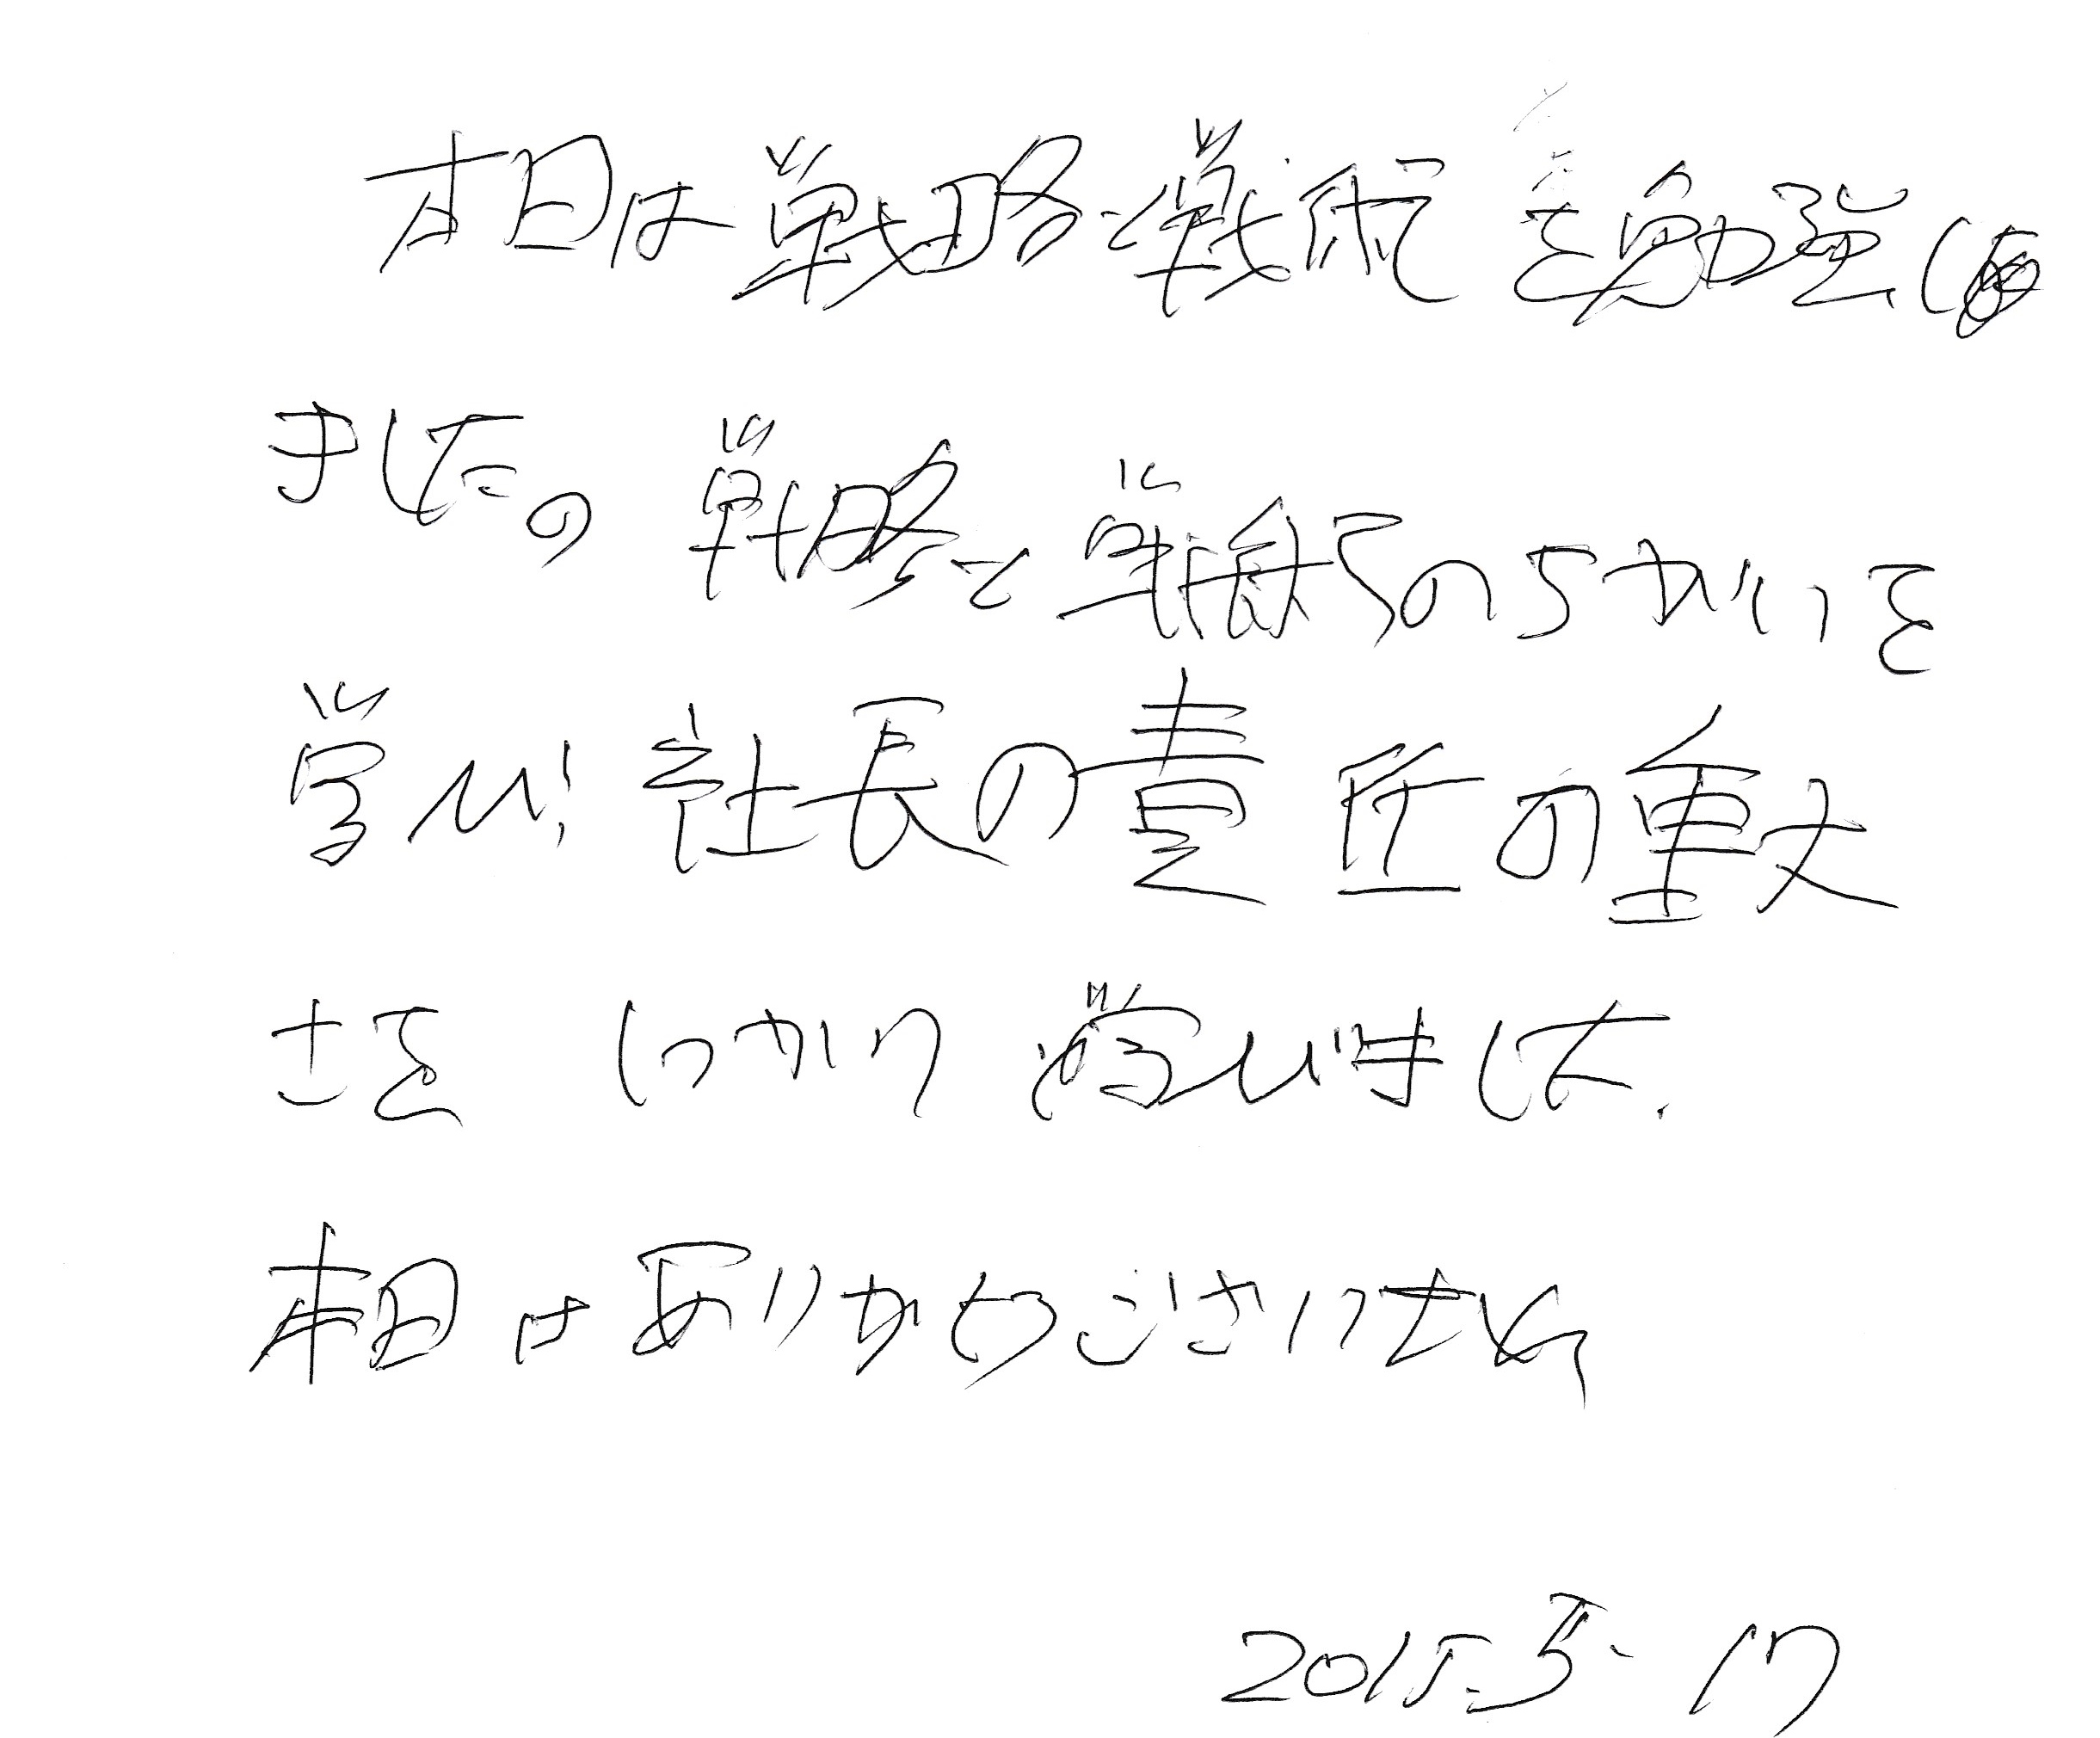 本日は戦略と戦術を勉強し
ました。戦略と戦術のちがいを
学び、社長の責任の重大
さをしっかり学びました。
本日はありがとうございました。
2015.5-17